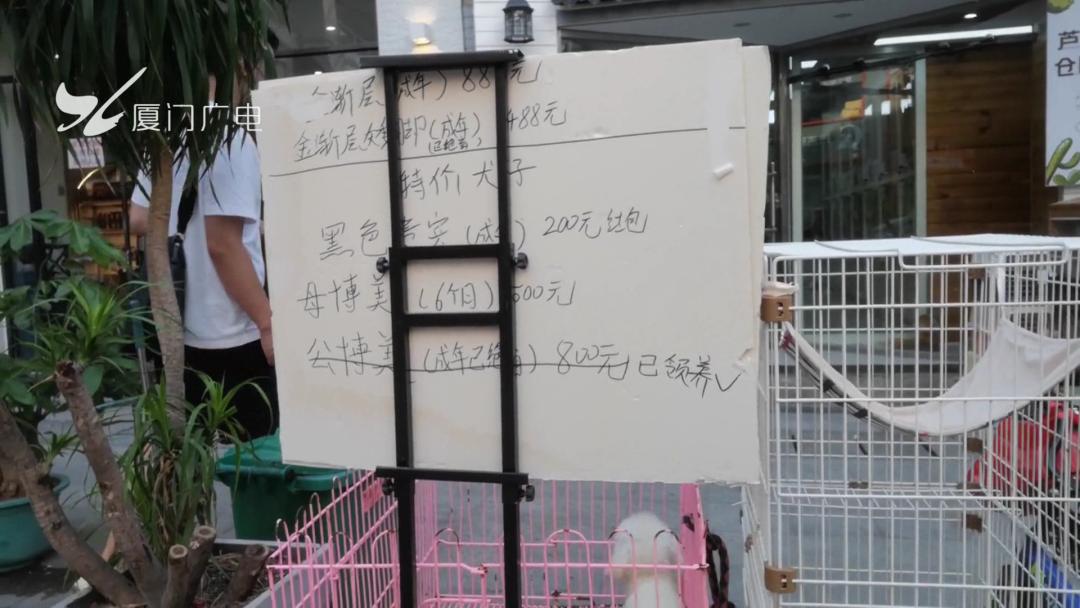 厦门广电
金渐层(成年) 88元
金渐层矮脚(成年) 488元
(已绝育)
特价犬子
黑色贵宾(成年) 200元红包
母博美(6个月) 500元
公博美(成年已绝育) 800元 已领养✓
芦
仓